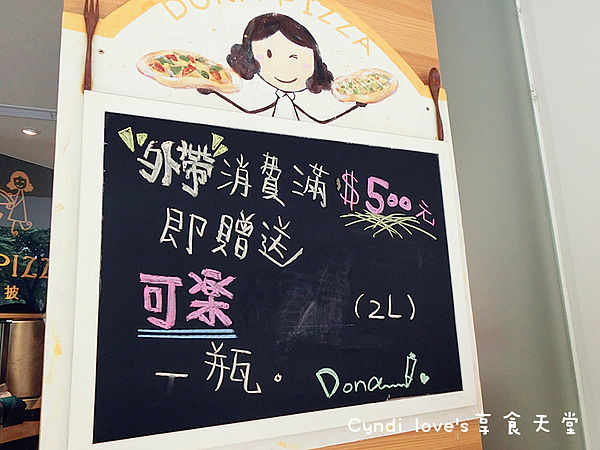 DONA PIZZA
外帶消費滿$500元
即贈送
可楽 (2L)
一瓶。
Dona
PIZZ
披
Cyndi love's享食天堂